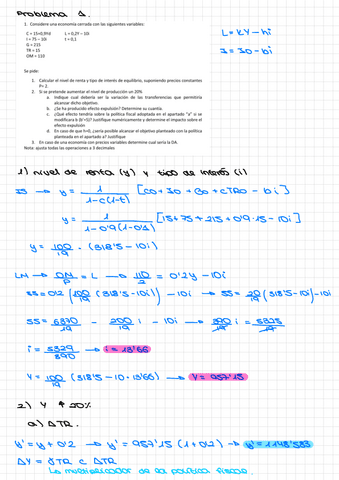 Problema 1.
1. Considere una economía cerrada con las siguientes variables:
C = 15+0,9Yd L = 0,2Y – 10i
I = 75 – 10i t = 0,1
G = 215
TR = 15
OM = 110
L = KY - hi
I = I0 - bi
Se pide:
1. Calcular el nivel de renta y tipo de interés de equilibrio, suponiendo precios constantes
P= 2.
2. Si se pretende aumentar el nivel de producción un 20%
a. Indique cual debería ser la variación de las transferencias que permitiría
alcanzar dicho objetivo.
b. ¿Se ha producido efecto expulsión? Determine su cuantía.
c. ¿Qué efecto tendría sobre la política fiscal adoptada en el apartado "a" si se
modificara b (b'=5)? Justifique numéricamente y determine el impacto sobre el
efecto expulsión.
d. En caso de que h=0, ¿sería posible alcanzar el objetivo planteado con la política
planteada en el apartado a? Justifique
3. En caso de una economía con precios variables determine cual sería la DA.
Nota: ajusta todas las operaciones a 3 decimales
1) nivel de renta (y) y tipo de interés (i)
IS → y = 1/1-c(1-t) [C0 + I0 + G0 + cTR0 - bi]
y = 1/1-0'9(1-0'1) [15+75+215+0'9·15-10i]
y = 100/19 · (318'5 - 10i)
LM → OM/P = L → 110/2 = 0'2y - 10i
55 = 0'2 (100/19 (318'5-10i)) - 10i → 55 = 20/19 (318'5-10i) - 10i
55 = 6370/19 - 200/19 i - 10i → 390/19 i = 5325/19
i = 5325/390 → i = 13'66
Y = 100/19 (318'5 - 10·13'66) → Y = 957'15
2) Y ↑ 20%
a) ΔTR.
y' = y + 0'2 → y' = 957'15 (1+0'2) → y' = 1148'583
ΔY = γTR c ΔTR
Lo multiplicador de la política fiscal.